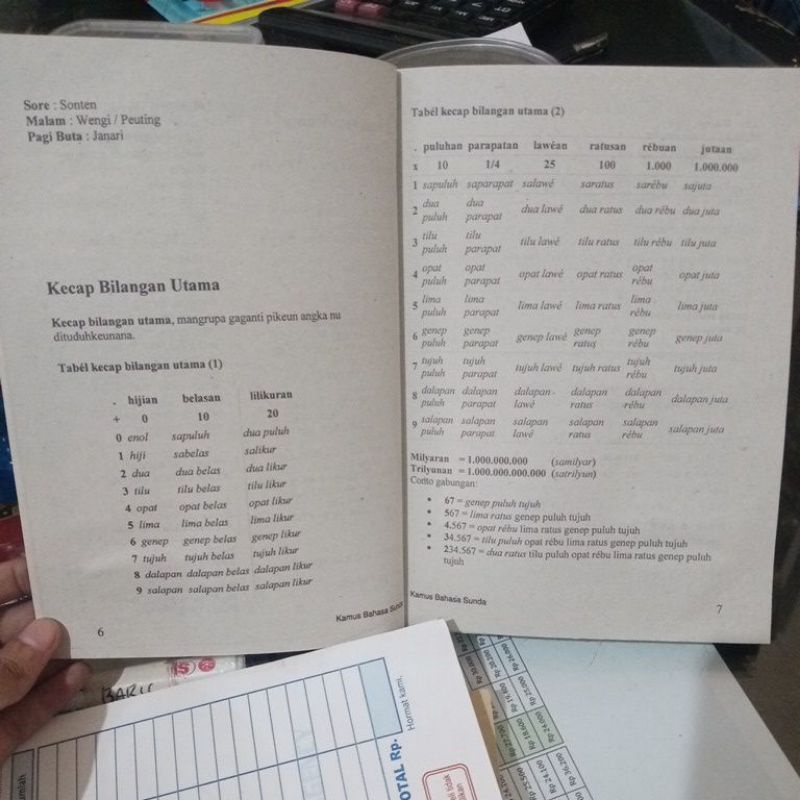 Sore : Sonten
Malam : Wengi / Peuting
Pagi Buta : Janari
Kecap Bilangan Utama
Kecap bilangan utama, mangrupa gaganti pikeun angka nu
dituduhkeunana.
Tabél kecap bilangan utama (1)
. hijian belasan lilikuran
+ 0 10 20
0 enol sapuluh dua puluh
1 hiji sabelas salikur
2 dua dua belas dua likur
3 tilu tilu belas tilu likur
4 opat opat belas opat likur
5 lima lima belas lima likur
6 genep genep belas genep likur
7 tujuh tujuh belas tujuh likur
8 dalapan dalapan belas dalapan likur
9 salapan salapan belas salapan likur
Kamus Bahasa Sunda
6
Tabél kecap bilangan utama (2)
. puluhan parapatan lawéan ratusan rébuan jutaan
x 10 1/4 25 100 1.000 1.000.000
1 sapuluh saparapat salawé saratus sarébu sajuta
2 dua puluh dua parapat dua lawé dua ratus dua rébu dua juta
3 tilu puluh tilu parapat tilu lawé tilu ratus tilu rébu tilu juta
4 opat puluh opat parapat opat lawé opat ratus opat rébu opat juta
5 lima puluh lima parapat lima lawé lima ratus lima rébu lima juta
6 genep puluh genep parapat genep lawé genep ratus genep rébu genep juta
7 tujuh puluh tujuh parapat tujuh lawé tujuh ratus tujuh rébu tujuh juta
8 dalapan puluh dalapan parapat dalapan lawé dalapan ratus dalapan rébu dalapan juta
9 salapan puluh salapan parapat salapan lawé salapan ratus salapan rébu salapan juta
Milyaran = 1.000.000.000 (samilyar)
Trilyunan = 1.000.000.000.000 (satrilyun)
Conto gabungan:
• 67 = genep puluh tujuh
• 567 = lima ratus genep puluh tujuh
• 4.567 = opat rébu lima ratus genep puluh tujuh
• 34.567 = tilu puluh opat rébu lima ratus genep puluh tujuh
• 234.567 = dua ratus tilu puluh opat rébu lima ratus genep puluh
tujuh
Kamus Bahasa Sunda
7
BARU
Hormat kami,
Rp.